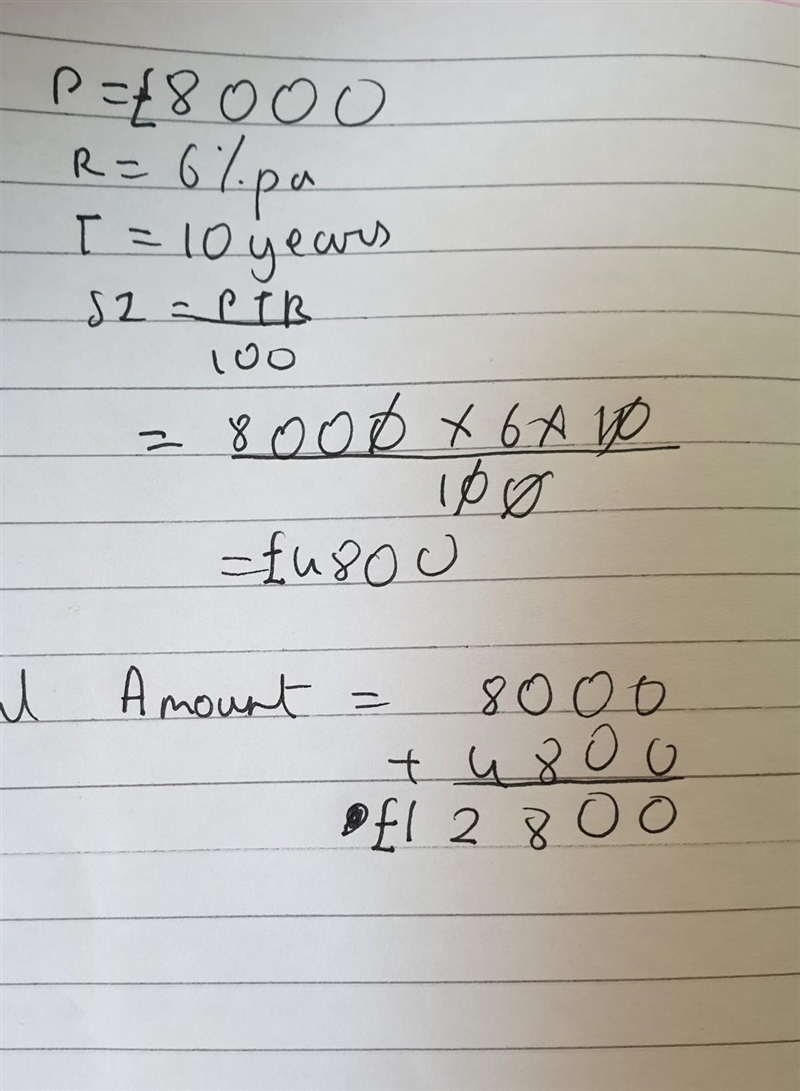 P = £8000
R = 6%.pa
T = 10 years
SI = PTR
100
= 8000 x 6 x 10
100
= £4800
Amount = 8000
+ 4800
£12800